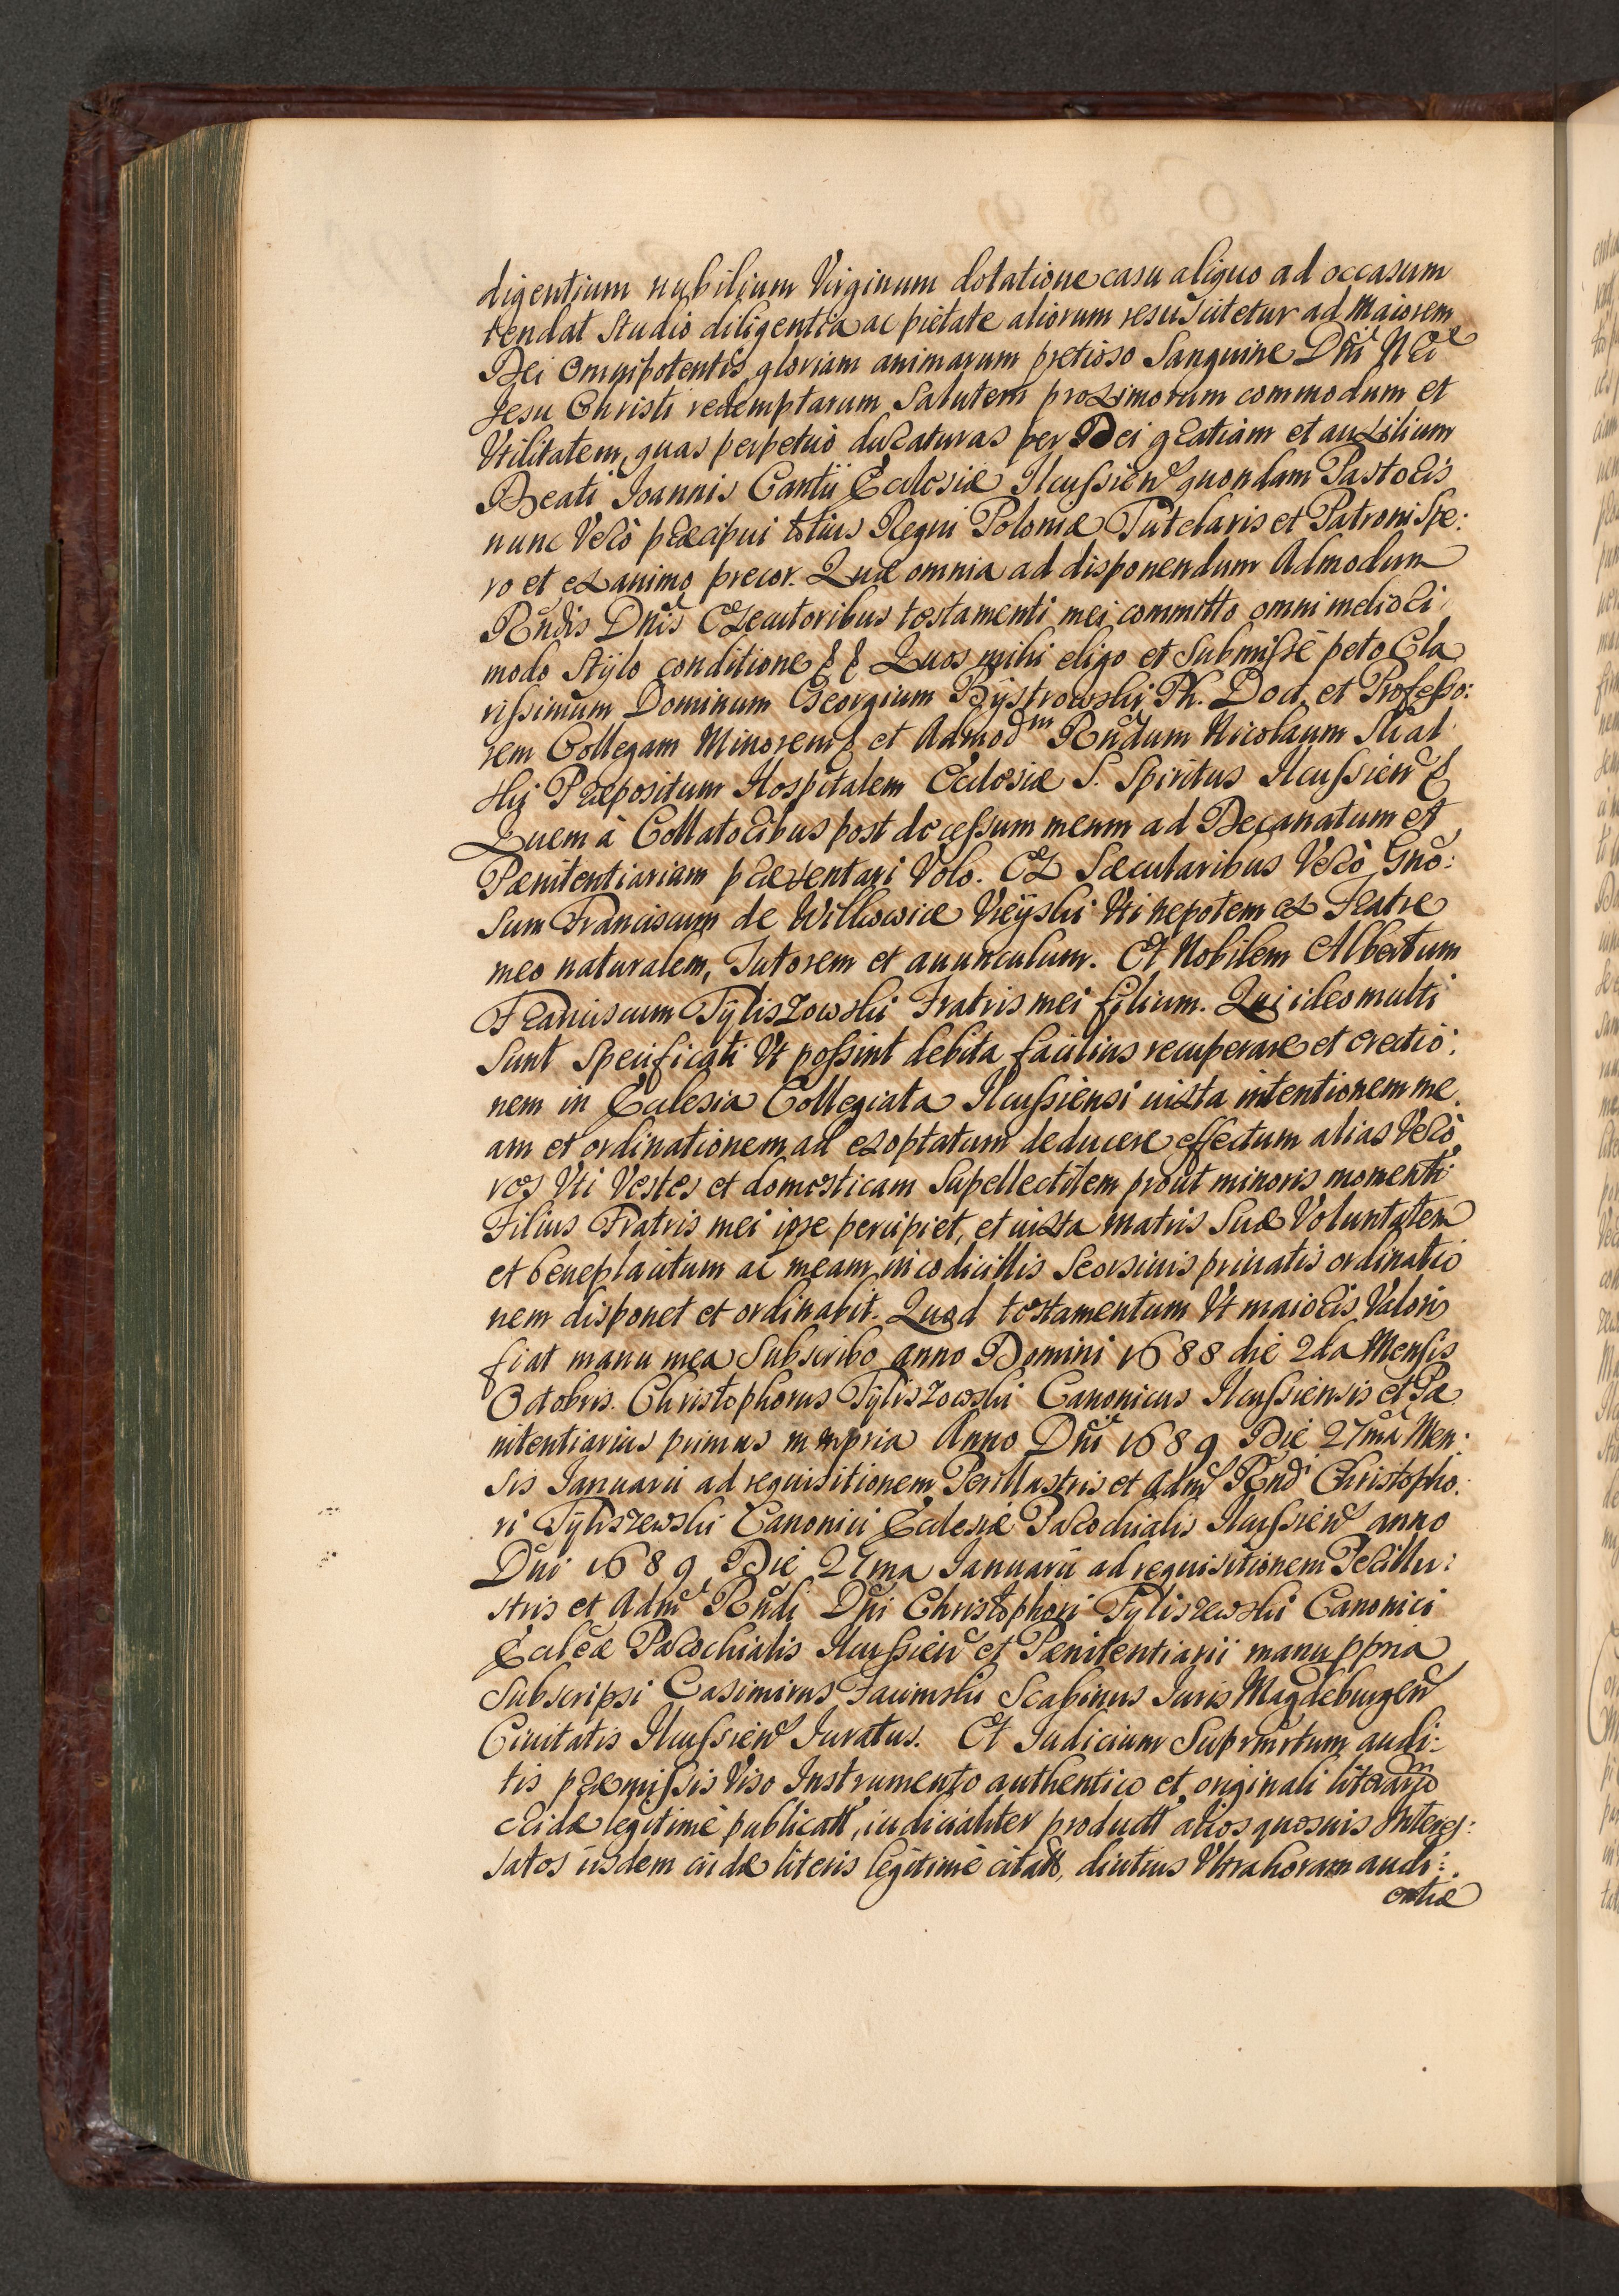 digentium nubilium Virginum dotatione casu aliquo ad occasum
tendat Studio diligentia ac pietate aliorum resuscitetur ad maiorem
Dei Omnipotentis gloriam animarum pretioso Sanguine Dni Nri
Jesu Christi redemptarum Salutem proximorum commodum et
Vtilitatem, quas perpetuò duraturas per Dei gratiam et auxilium
Beati Joannis Cantii Ecclesiæ Ilcussien quondam Pastoris
nunc Verò præcipui totius Regni Poloniæ Tutelaris et Patroni Spe:
ro et ex animo precor. Quæ omnia ad disponendum Admodum
Rndis Dnis Executoribus testamenti mei committo omni meliori
modo Stylo conditione & & Quos mihi eligo et Submissè peto Cla
rissimum Dominum Georgium Bÿstrowski Ph. Doct. et Professo:
rem Collegam Minorem & et Admodm Rndum Nicolaum Skal
ski Præpositum Hospitalem Ecclesiæ S. Spiritus Ilcussien &
Quem à Collatoribus post decessum meum ad Decanatum et
Pænitentiariam præsentari Volo. Ex Sæcularibus Verò Gno:
sum Franciscum de Wilkowice Vieÿski Vti nepotem ex Fratre
meo naturalem, Tutorem et auunculum. Et Nobilem Albertum
Franciscum Tÿliszowski Fratris mei filium. Qui ideo multi
Sunt Specificati Vt possint debita facilius recuperare et erectio:
nem in Ecclesia Collegiata Ilcussiensi iuxta intentionem me
am et ordinationem ad exoptatum deducere effectum alias Verò
res Vti Vestes et domesticam Supellectilem prout minoris momenti
Filius Fratris mei ipse percipiet, et iuxta matris Suæ Voluntatem
et beneplacitum ac meam in codicillis Seorsiuis priuatis ordinatio
nem disponet et ordinabit. Quod testamentum Vt maioris Valoris
fiat manu mea Subscribo anno Domini 1688 die 2da Mensis
Octobris. Christophorus Tÿliszowski Canonicus Ilcussiensis et Pæ
nitentiarius primus mmpria Anno Dni 1689 Die 27ma Men:
sis Ianuarii ad requisitionem Perillustris et Adm Rnd Christopho:
ri Tÿliszewski Canonici Ecclesiæ Parochialis Ilcussien anno
Dni 1689 Die 27ma Ianuarii ad requisitionem Perillu:
stris et Adm Rndi Dni Christophori Tÿliszewski Canonici
Eccleæ Parochialis Ilcussien et Pænitentiarii manu ppria
Subscripsi Casimirus Scabinus Iuris Magdeburgen
Ciuitatis Ilcussien Iuratus. Et Iudicium Suprmrtum audi:
tis præmissis Viso Instrumento authentico et originali literarum
legitimè publicatt, iudicialiter productt alios quosuis Interes:
satos iisdem literis legitimè citatt, diutius Vltra horam audi:
entiæ